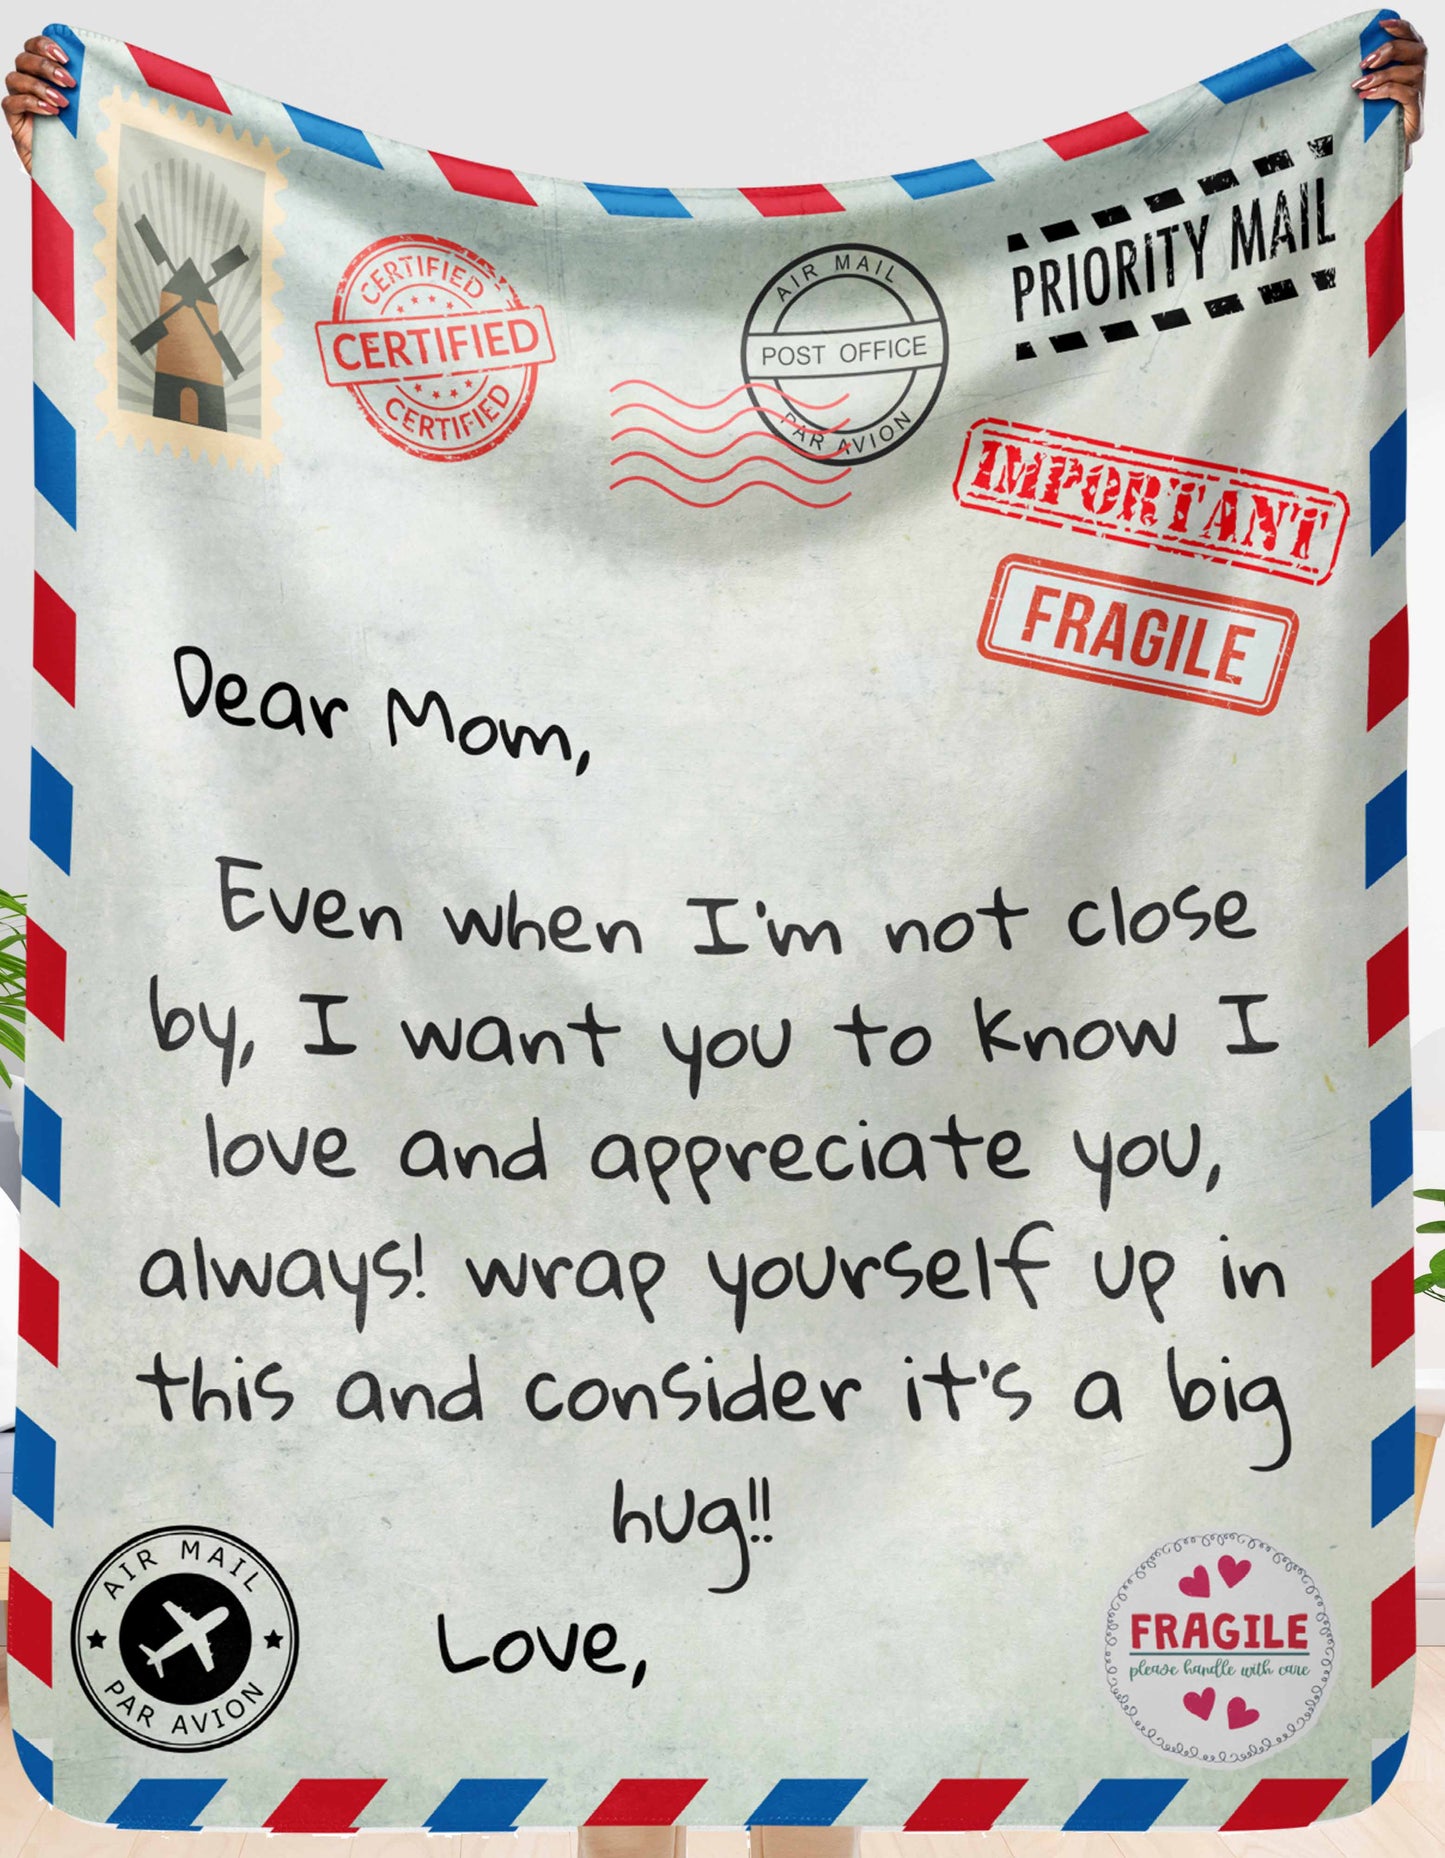 PRIORITY MAIL
CERTIFIED
CERTIFIED
CERTIFIED
AIR MAIL
POST OFFICE
PAR AVION
IMPORTANT
FRAGILE
Dear Mom,
Even when I'm not close
by, I want you to know I
love and appreciate you,
always! wrap yourself up in
this and consider it's a big
hug!!
Love,
AIR MAIL
PAR AVION
FRAGILE
please handle with care